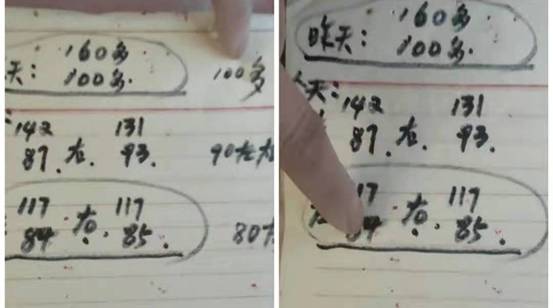 160多
天: 100多. 100多
142 131
87. 右. 93. 90左右
117 117
84. 右. 85. 80
160多
昨天: 100多.
天:
142 131
87. 右. 93.
17 117
84. 右. 85.